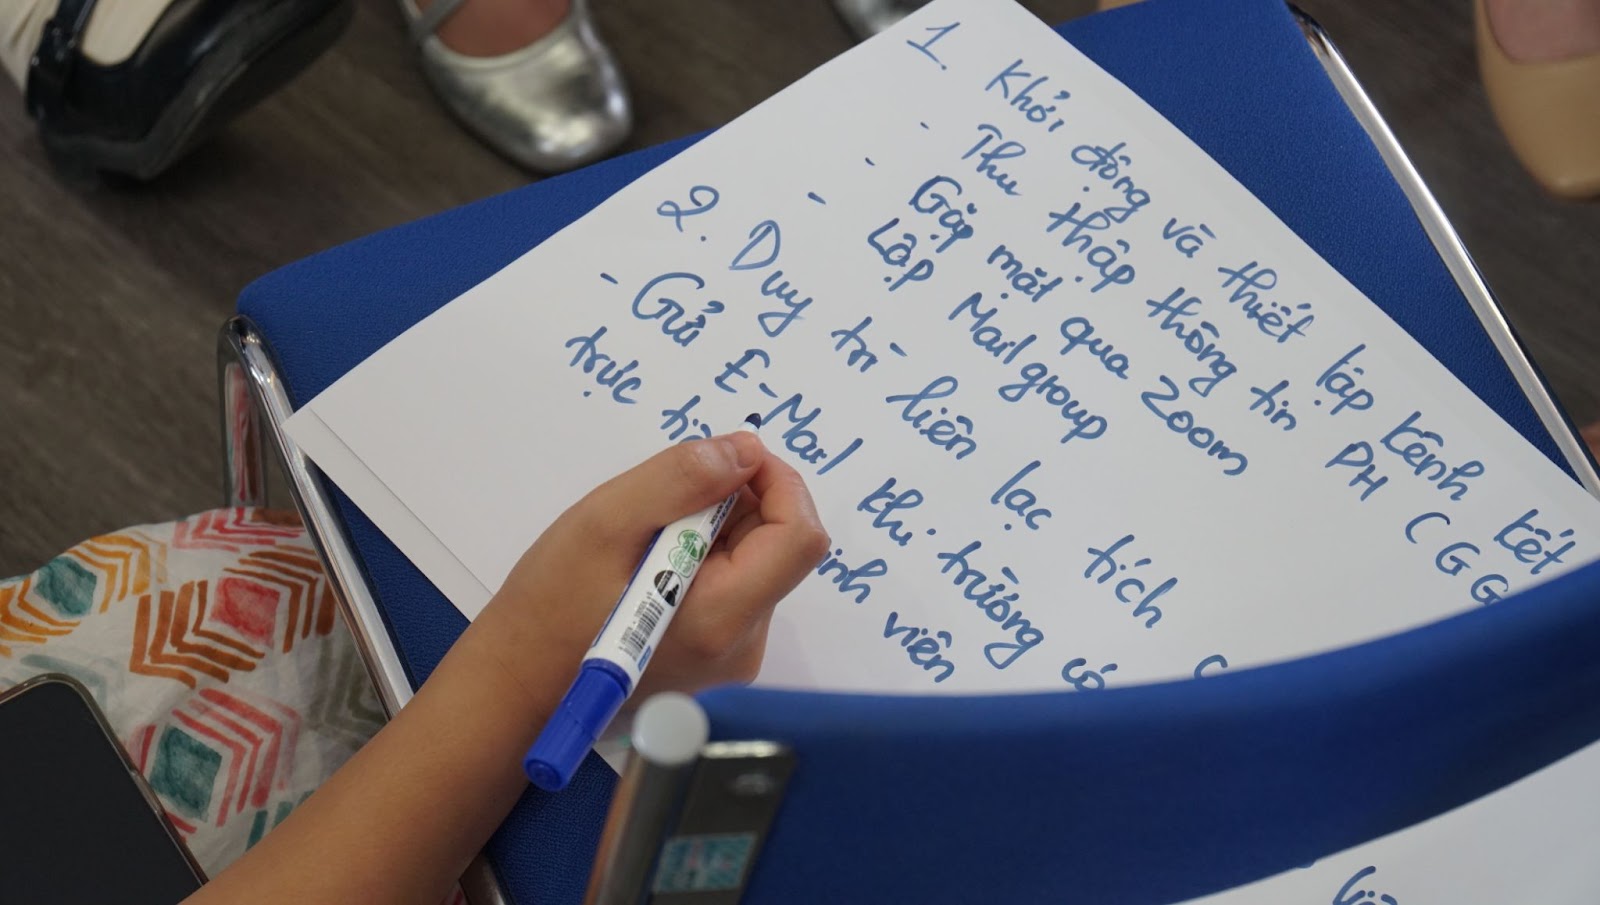 1. Khởi động và thiết lập kênh kết
- Thu thập thông tin PH (GG
- Gặp mặt qua Zoom
- Lập Mail group
2. Duy trì liên lạc tích
- Gửi E-Mail khi trường có
trực sinh viên